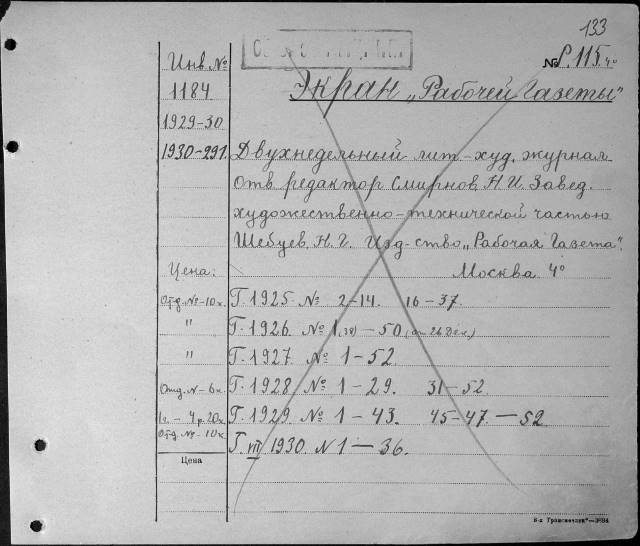 133
№ P. 115 4°
Экран „Рабочей Газеты"
Инв. №
1184
1929-30
1930-291.
Двухнедельный лит.-худ. журнал
Отв. редактор Смирнов Н. И. Завед.
художественно-технической частью
Шебуев. Н. Г. Изд-ство „Рабочая Газета".
Цена: Москва 4°
Отд. №-10к. Г. 1925 № 2-14. 16-37.
" Г. 1926. № 1(38)-50 (от 26 Дек.)
" Г. 1927. № 1-52.
Отд. N-6к. Г. 1928 № 1-29. 31-52.
1г.-4р.20к. Г. 1929. № 1-43. 45-47.-52.
Отд. №-10к.
Г. VII 1930. N 1-36.
Цена